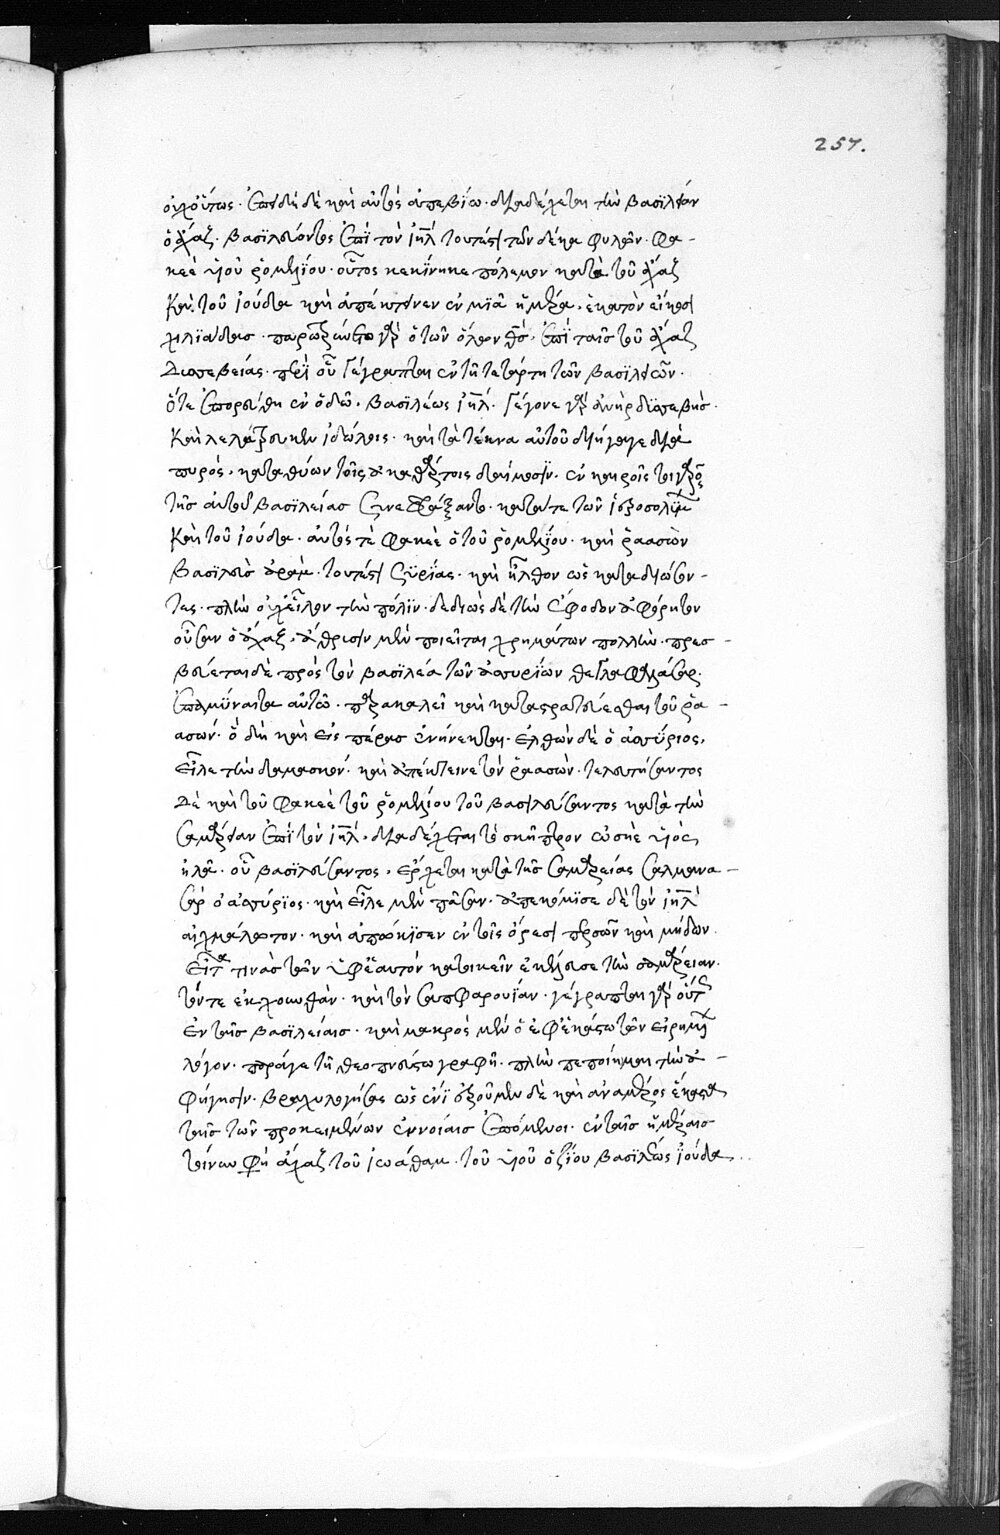 257.
οὐχ οὕτως. ἐπειδὴ δὲ καὶ αὐτὸς ἀπεβίω. διαδέχεται τὴν βασιλείαν
ὁ ἄχαζ. βασιλεύοντος ἐπὶ τὸν ἰηλ τουτέστι τῶν δέκα φυλῶν. φα-
κεὲ υἱοῦ ῥομελίου. οὗτος κεκίνηκε πόλεμον κατὰ τοῦ ἄχαζ
καὶ τοῦ ἰούδα καὶ ἀπέκτεινεν ἐν μιᾷ ἡμέρα, ἑκατὸν εἴκοσι
χιλιάδας. παρωξύνετο γὰρ ὁ τῶν ὅλων θς, ἐπὶ ταῖς τοῦ ἄχαζ
δυσσεβείαις. περὶ οὗ γέγραπται ἐν τῇ τετάρτη τῶν βασιλειῶν.
ὅτι ἐπορεύθη ἐν ὁδῶ. βασιλέως ἰηλ. γέγονε γὰρ ἀνὴρ δυσσεβὴς.
καὶ λελάτρευκεν εἰδώλοις. καὶ τὰ τέκνα αὐτοῦ διήγαγε διὰ
πυρός, καταθύων τοῖς ἀκαθάρτοις δαίμοσιν. ἐν καιροῖς τοιγαροῦν
τῆς αὐτοῦ βασιλείας συνεταράξαντο. κατά τε τῶν ἱεροσολύμων
καὶ τοῦ ἰούδα. αὐτός τε φακεὲ ὁ τοῦ ῥομελίου. καὶ ῥαασσὼν
βασιλεὺς ἀρὰμ. τουτέστι συρίας. καὶ ἦλθον ὡς καταδηώσον-
τες. πλὴν οὐχ εἷλον τὴν πόλιν. δεδιὼς δὲ τὴν ἔφοδον ἀφόρητον
οὖσαν ὁ ἄχαζ, ἄθροισιν μὲν ποιεῖται χρημάτων πολλὴν. πρεσ-
βεύεται δὲ πρὸς τὸν βασιλέα τῶν ἀσσυρίων θεγλαφαλάσαρ.
ἐπαμύναι τε αὐτῶ. παρακαλεῖ καὶ καταστρατεύεσθαι τοῦ ῥα-
ασών. ὃ δὴ καὶ εἰς πέρας ἐνήνεκται. ἐλθὼν δὲ ὁ ἀσσύριος,
εἷλε τὴν δαμασκόν. καὶ ἀπέκτεινε τὸν ῥαασών. τελευτήσαντος
δὲ καὶ τοῦ φακεὲ τοῦ ῥομελίου τοῦ βασιλεύσαντος κατὰ τὴν
σαμάρειαν ἐπὶ τὸν ἰηλ, διαδέχεται τὸ σκῆπτρον ὠσηὲ υἱὸς
ἠλᾶ. οὗ βασιλεύσαντος, ἔρχεται κατὰ τῆς σαμαρείας σαλμανα-
σὰρ ὁ ἀσσύριος. καὶ εἷλε μὲν πᾶσαν. ἀπεκόμισε δὲ τὸν ἰηλ
αἰχμάλωτον. καὶ ἀπῴκισεν ἐν τοῖς ὄρεσι περσῶν καὶ μήδων.
εἶτα τινὰς τῶν ὑφ' ἑαυτὸν κατοικεῖν ἐκέλευσε τὴν σαμάρειαν.
τόν τε ἐκχουωθὰν. καὶ τὸν σαπφαρουΐαν. γέγραπται γὰρ οὕτως
ἐν ταῖς βασιλείαις. καὶ μακρὸς μὲν ὁ ἐφ' ἑκάστω τῶν εἰρημένων
λόγον. παράγε τῇ θεοπνεύστω γραφῇ. πλὴν πεποίημαι τὴν ἀ-
φήγησιν. βραχυλογήσας ὡς ἔνι εὑροῦμεν δὲ καὶ ἀναμέρος ἕκαστα
ταῖς τῶν προκειμένων ἐννοίαις ἑπόμενοι. ἐν ταῖς ἡμέραις
τοίνυν φη ἄχαζ τοῦ ἰωάθαμ. τοῦ υἱοῦ ὀζίου βασιλέως ἰούδα..